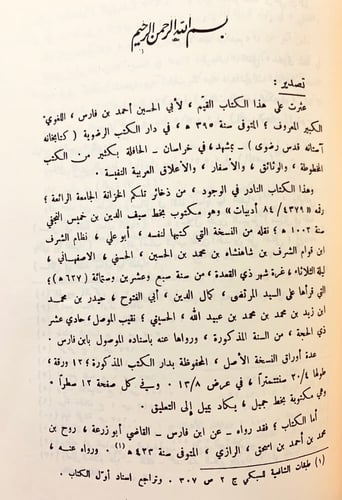 بسم الله الرحمن الرحيم
تصدير :
عثرت على هذا الكتاب القيّم ، لأبي الحسين أحمد بن فارس ، اللغوي
الكبير المعروف ؛ المتوفى سنة ٣٩٥ هـ ، في دار الكتب الرضوية ( كتابخانه
آستانه قدس رضوى ) - بمشهد ، في خراسان - الحافلة بكثير من الكتب
المخطوطة ، والوثائق ، والأسفار ، والأعلاق العربية النفيسة .
وهذا الكتاب النادر في الوجود ، من ذخائر تلكم الخزانة الجامعة الرائعة ؛
رقمه « ٨٤/٤٣٧٩ أدبيات » وهو مكتوب بخط سيف الدين بن خميس النجفي
سنة ١٠٠٢ هـ ؛ نقله من النسخة التي كتبها لنفسه ، أبو علي ، نظام الشرف
ابن قوام الشرف بن شاهنشاه بن محمد بن الحسين ، الحسني ، الاصفهاني ،
ليلة الثلاثاء ، غرة شهر ذي القعدة ، من سنة سبع وعشرين وستمائة ( ٦٢٧ هـ ) ؛
التي قرأها على السيد المرتضى ، كمال الدين ، أبي الفتوح ، حيدر بن محمد
ابن زيد بن محمد بن محمد بن عبيد الله ، الحسيني ؛ نقيب الموصل ، حادي عشر
ذي الحجة ، من السنة المذكورة ، ورواها عنه باسناده الموصول بابن فارس .
عدة أوراق النسخة الأصل ، المحفوظة بدار الكتب المذكورة ؛ ١٢ ورقة ،
طولها ٢٠/٤ سنتمتراً ، في عرض ١٣/٨ . وفي كل صفحة ١٢ سطراً .
وهي مكتوبة بخط جميل ، يكاد يميل إلى التعليق .
أما الكتاب ؛ فقد رواه - عن ابن فارس - القاضي أبو زرعة ، روح بن
محمد بن أحمد بن اسحق ، الرازي ، المتوفى سنة ٤٢٣ هـ (١) . ورواه عنه ،
(١) طبقات الشافعية للسبكي ج ٢ ص ٣٠٧ . وتراجم اسناد أوّل الكتاب .